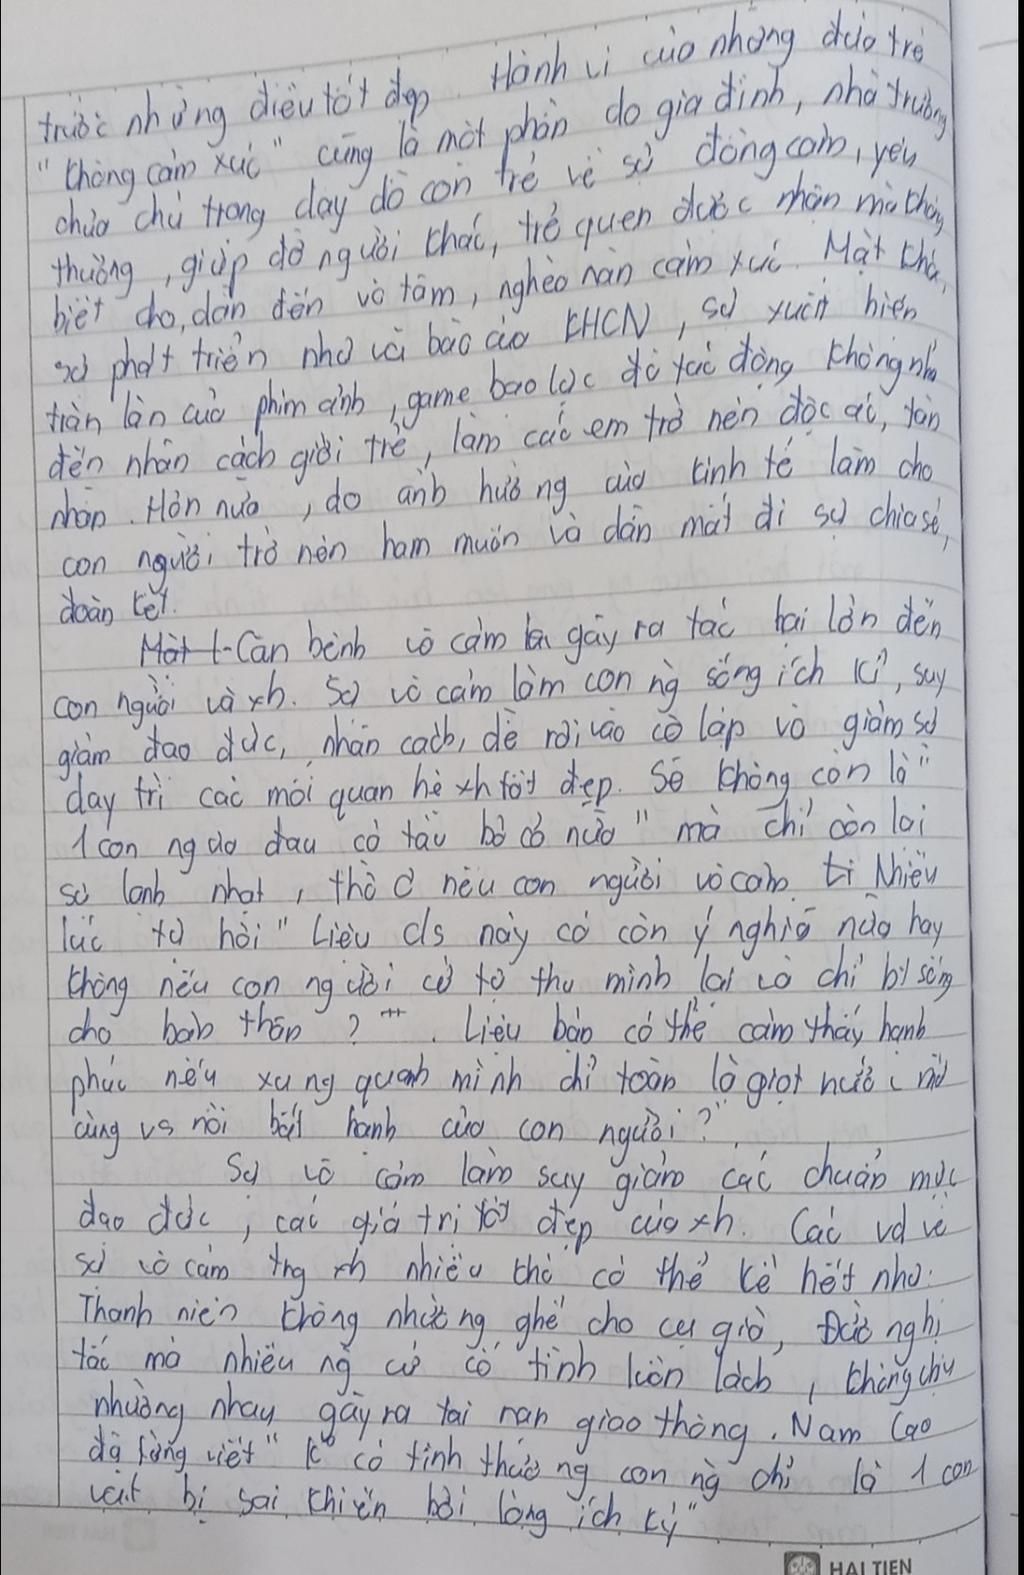 trước những điều tốt đẹp. Hành vi của những đứa trẻ
"không cảm xúc" cũng là một phần do gia đình, nhà trường
chưa chú trọng dạy dỗ con trẻ về sự đồng cảm, yêu
thương, giúp đỡ người khác, trẻ quen được nhận mà không
biết cho, dẫn đến vô tâm, nghèo nàn cảm xúc. Mặt khác,
sự phát triển như vũ bão của KHCN, sự xuất hiện
tràn lan của phim ảnh, game bạo lực đã tác động không nhỏ
đến nhân cách giới trẻ, làm các em trở nên độc ác, tàn
nhẫn. Hơn nữa, do ảnh hưởng của kinh tế làm cho
con người trở nên ham muốn và dần mất đi sự chia sẻ,
đoàn kết.
Căn bệnh vô cảm gây ra tác hại lớn đến
con người và xh. Sự vô cảm làm con ng sống ích kỉ, suy
giảm đạo đức, nhân cách, dễ rơi vào cô lập và giảm sự
duy trì các mối quan hệ xh tốt đẹp. Sẽ không còn là "
1 con ngựa đau cả tàu bỏ cỏ nữa" mà chỉ còn lại
sự lạnh nhạt, thờ ơ nếu con người vô cảm. Nhiều
lúc tự hỏi "Liệu cs này có còn ý nghĩa nữa hay
không nếu con người cứ tự thu mình lại và chỉ sống
cho bản thân?". Liệu bạn có thể cảm thấy hạnh
phúc nếu xung quanh mình chỉ toàn là giọt nước mắt
cùng vs nỗi bất hạnh của con người?"
Sự vô cảm làm suy giảm các chuẩn mực
đạo đức, các giá trị tốt đẹp của xh. Các vd về
sự vô cảm trg xh nhiều khó có thể kể hết như:
Thanh niên không nhường ghế cho cụ già, Đường
tắc mà nhiều ng cứ cố tình luồn lách, không chịu
nhường nhau gây ra tai nạn giao thông. Nam Cao
đã từng viết "K có tình thương con ng chỉ là 1 con
vật bị sai khiến bởi lòng ích kỷ"
HẢI TIẾN